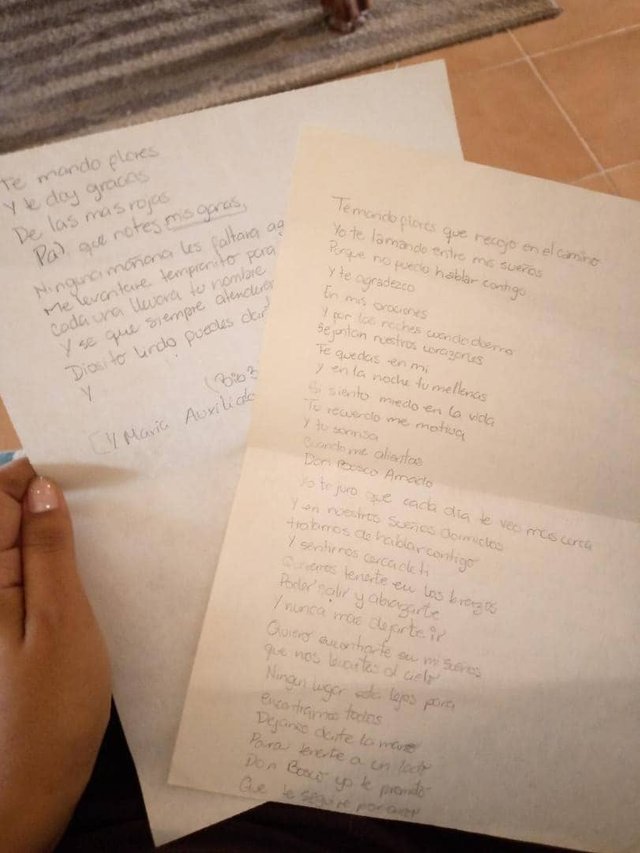 Te mando flores
Y te doy gracias
De las mas rojas
Pa) que notes mis ganas,
Ninguna mañana les faltara ag
Me levantare tempranito para
Cada una llevara tu nombre
Y se que siempre atenderar
Diosito lindo puedes dar
Y
(Bis
[Y Maria Auxiliado
Te mando flores que recojo en el camino
Yo te las mando entre mis sueños
Porque no puedo hablar contigo
y te agradezco
En mis oraciones
Y por las noches cuando duermo
Se juntan nuestros corazones
Te quedas en mi
y en la noche tu me llenas
Si siento miedo en la vida
Tu recuerdo me motiva
Y tu sonrisa
Cuando me alientas
Don Bosco Amado
Yo te juro que cada dia te veo mas cerca
Y en nuestros sueños dormidos
tratamos de hablar contigo
Y sentirnos cerca de ti
Queremos tenerte en los brazos
Poder salir y abrazarte
Y nunca mas dejarte ir
Quiero encontrarte en mi sueños
que nos levantes al cielo
Ningun lugar esta lejos para
encontrarnos todos
Dejanos darte la mano
Para tenerte a un lado
Don Bosco yo te prometo
Que te seguire por